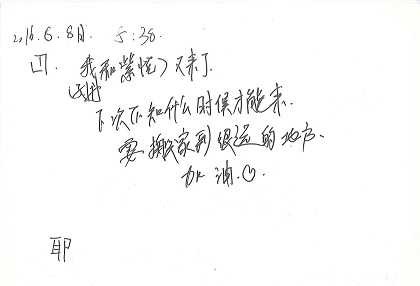 2016.6.8日. 5:38.
我和紫悦又来了
下次不知什么时候才能来.
要搬家到很远的地方.
加油.♡
耶